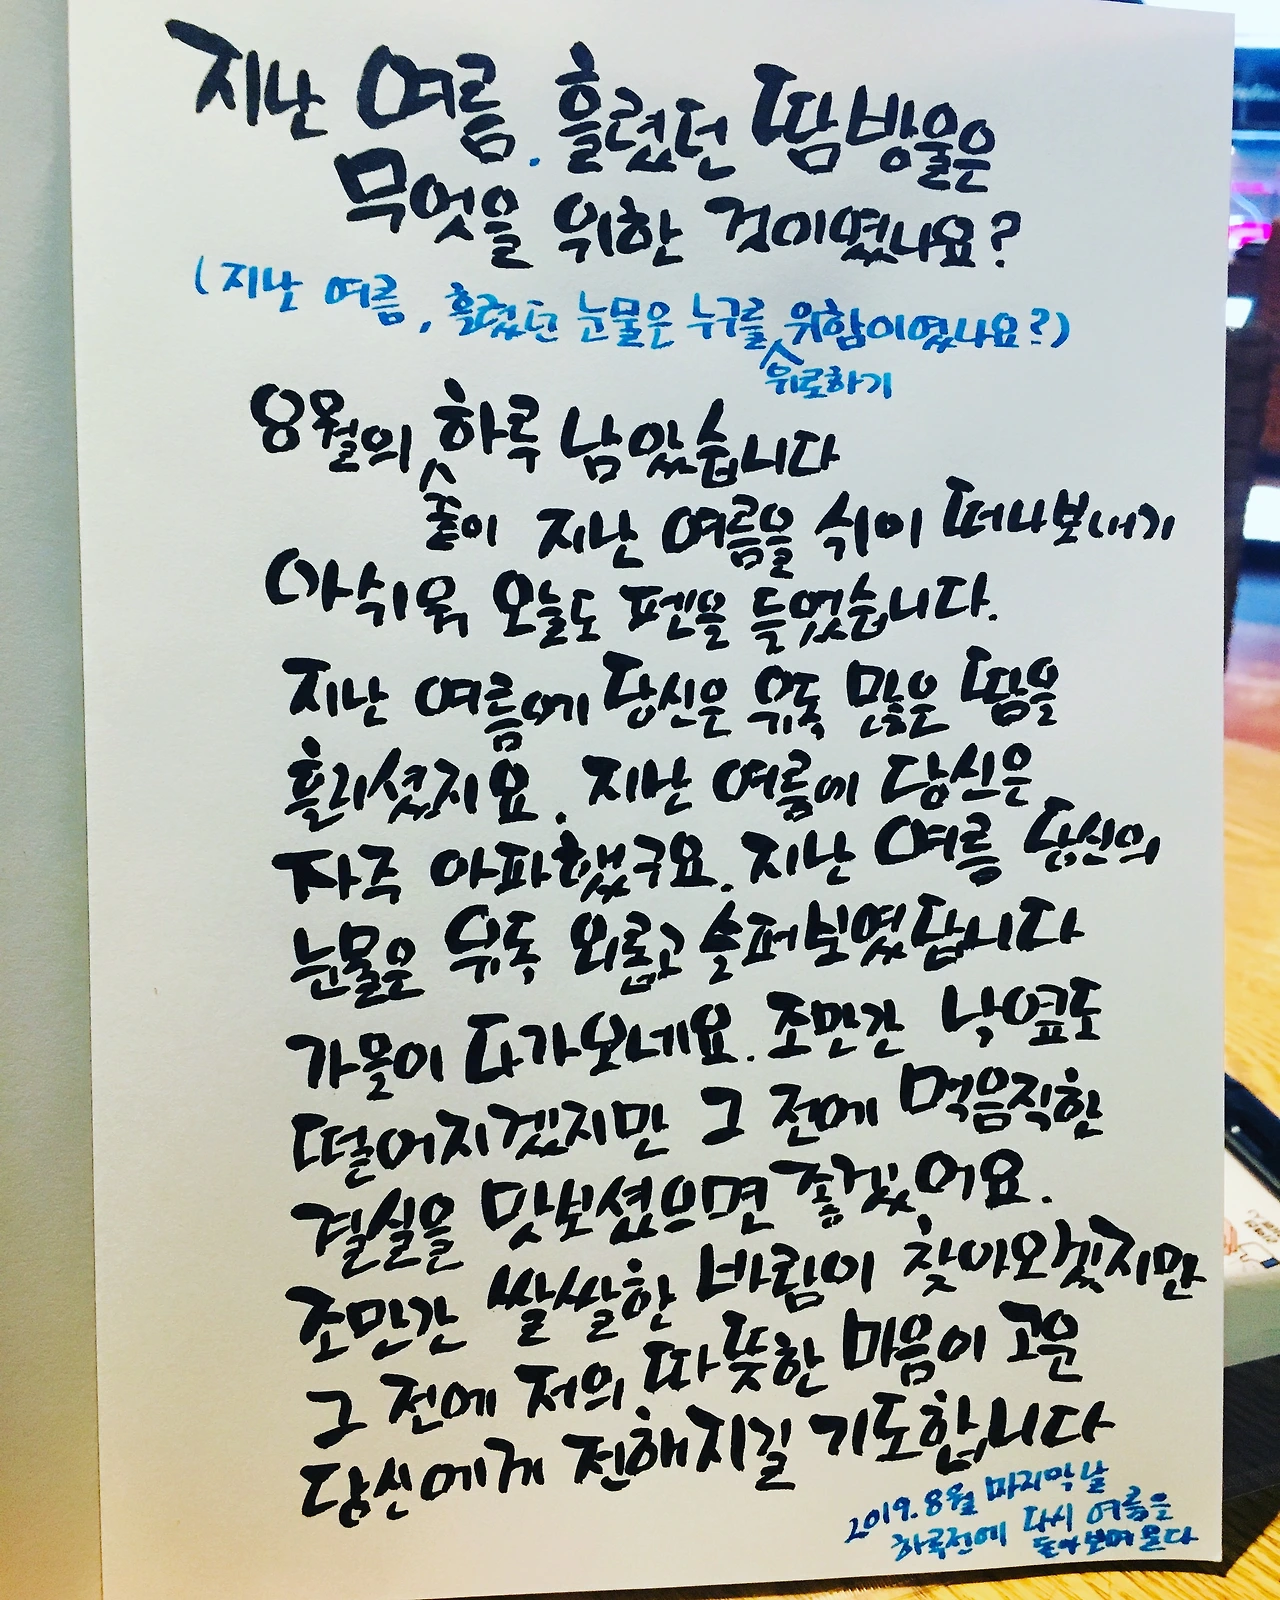 지난 여름, 흘렸던 땀방울은
무엇을 위한 것이였나요?
(지난 여름, 흘렸던 눈물은 누구를 위함이였나요?)
위로하기
8월의 하루 남았습니다
좋이 지난 여름을 쉬이 떠나보내기
아쉬워 오늘도 펜을 들었습니다.
지난 여름에 당신은 유독 많은 땀을
흘리셨지요. 지난 여름에 당신은
자주 아파했구요. 지난 여름 당신의
눈물은 유독 외롭고 슬퍼보였답니다
가을이 다가보네요. 조만간 낙엽도
떨어지겠지만 그 전에 먹음직한
결실을 맛보셨으면 좋겠어요.
조만간 쌀쌀한 바람이 찾아오겠지만
그 전에 저의 따뜻한 마음이 고운
당신에게 전해지길 기도합니다
2019.8월 마지막 날
하루전에 다시 여름을
돌아보며 운다